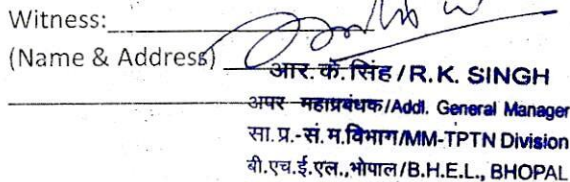 Witness:
(Name & Address)
आर. के. सिंह / R.K. SINGH
अपर महाप्रबंधक/Addl. General Manager
सा. प्र.-सं. म.विभाग/MM-TPTN Division
बी.एच.ई.एल.,भोपाल/B.H.E.L., BHOPAL